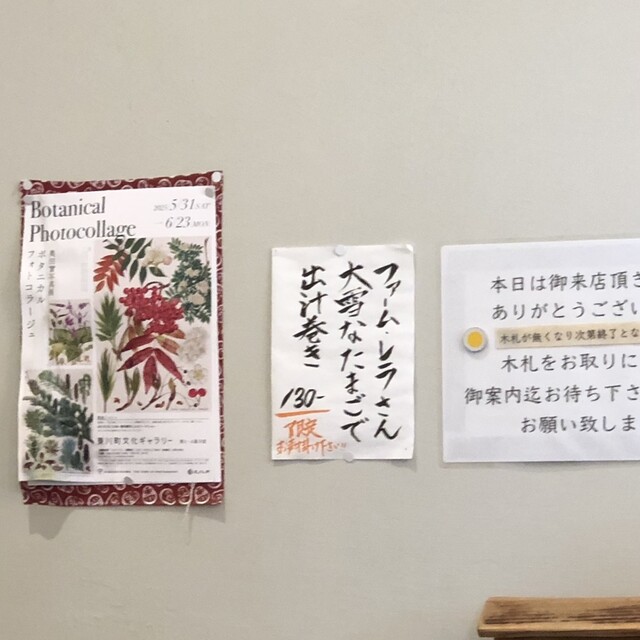 Botanical
Photocollage
2025 5/31 SAT
6/23 MON
ボタニカル
フォトコラージュ
東川町文化ギャラリー
ファームレラさん
大雪なたまごで
出汁巻き
130-
本日は御来店頂き
ありがとうござい
木札が無くなり次第終了とな
木札をお取りに
御案内迄お待ち下さ
お願い致しま